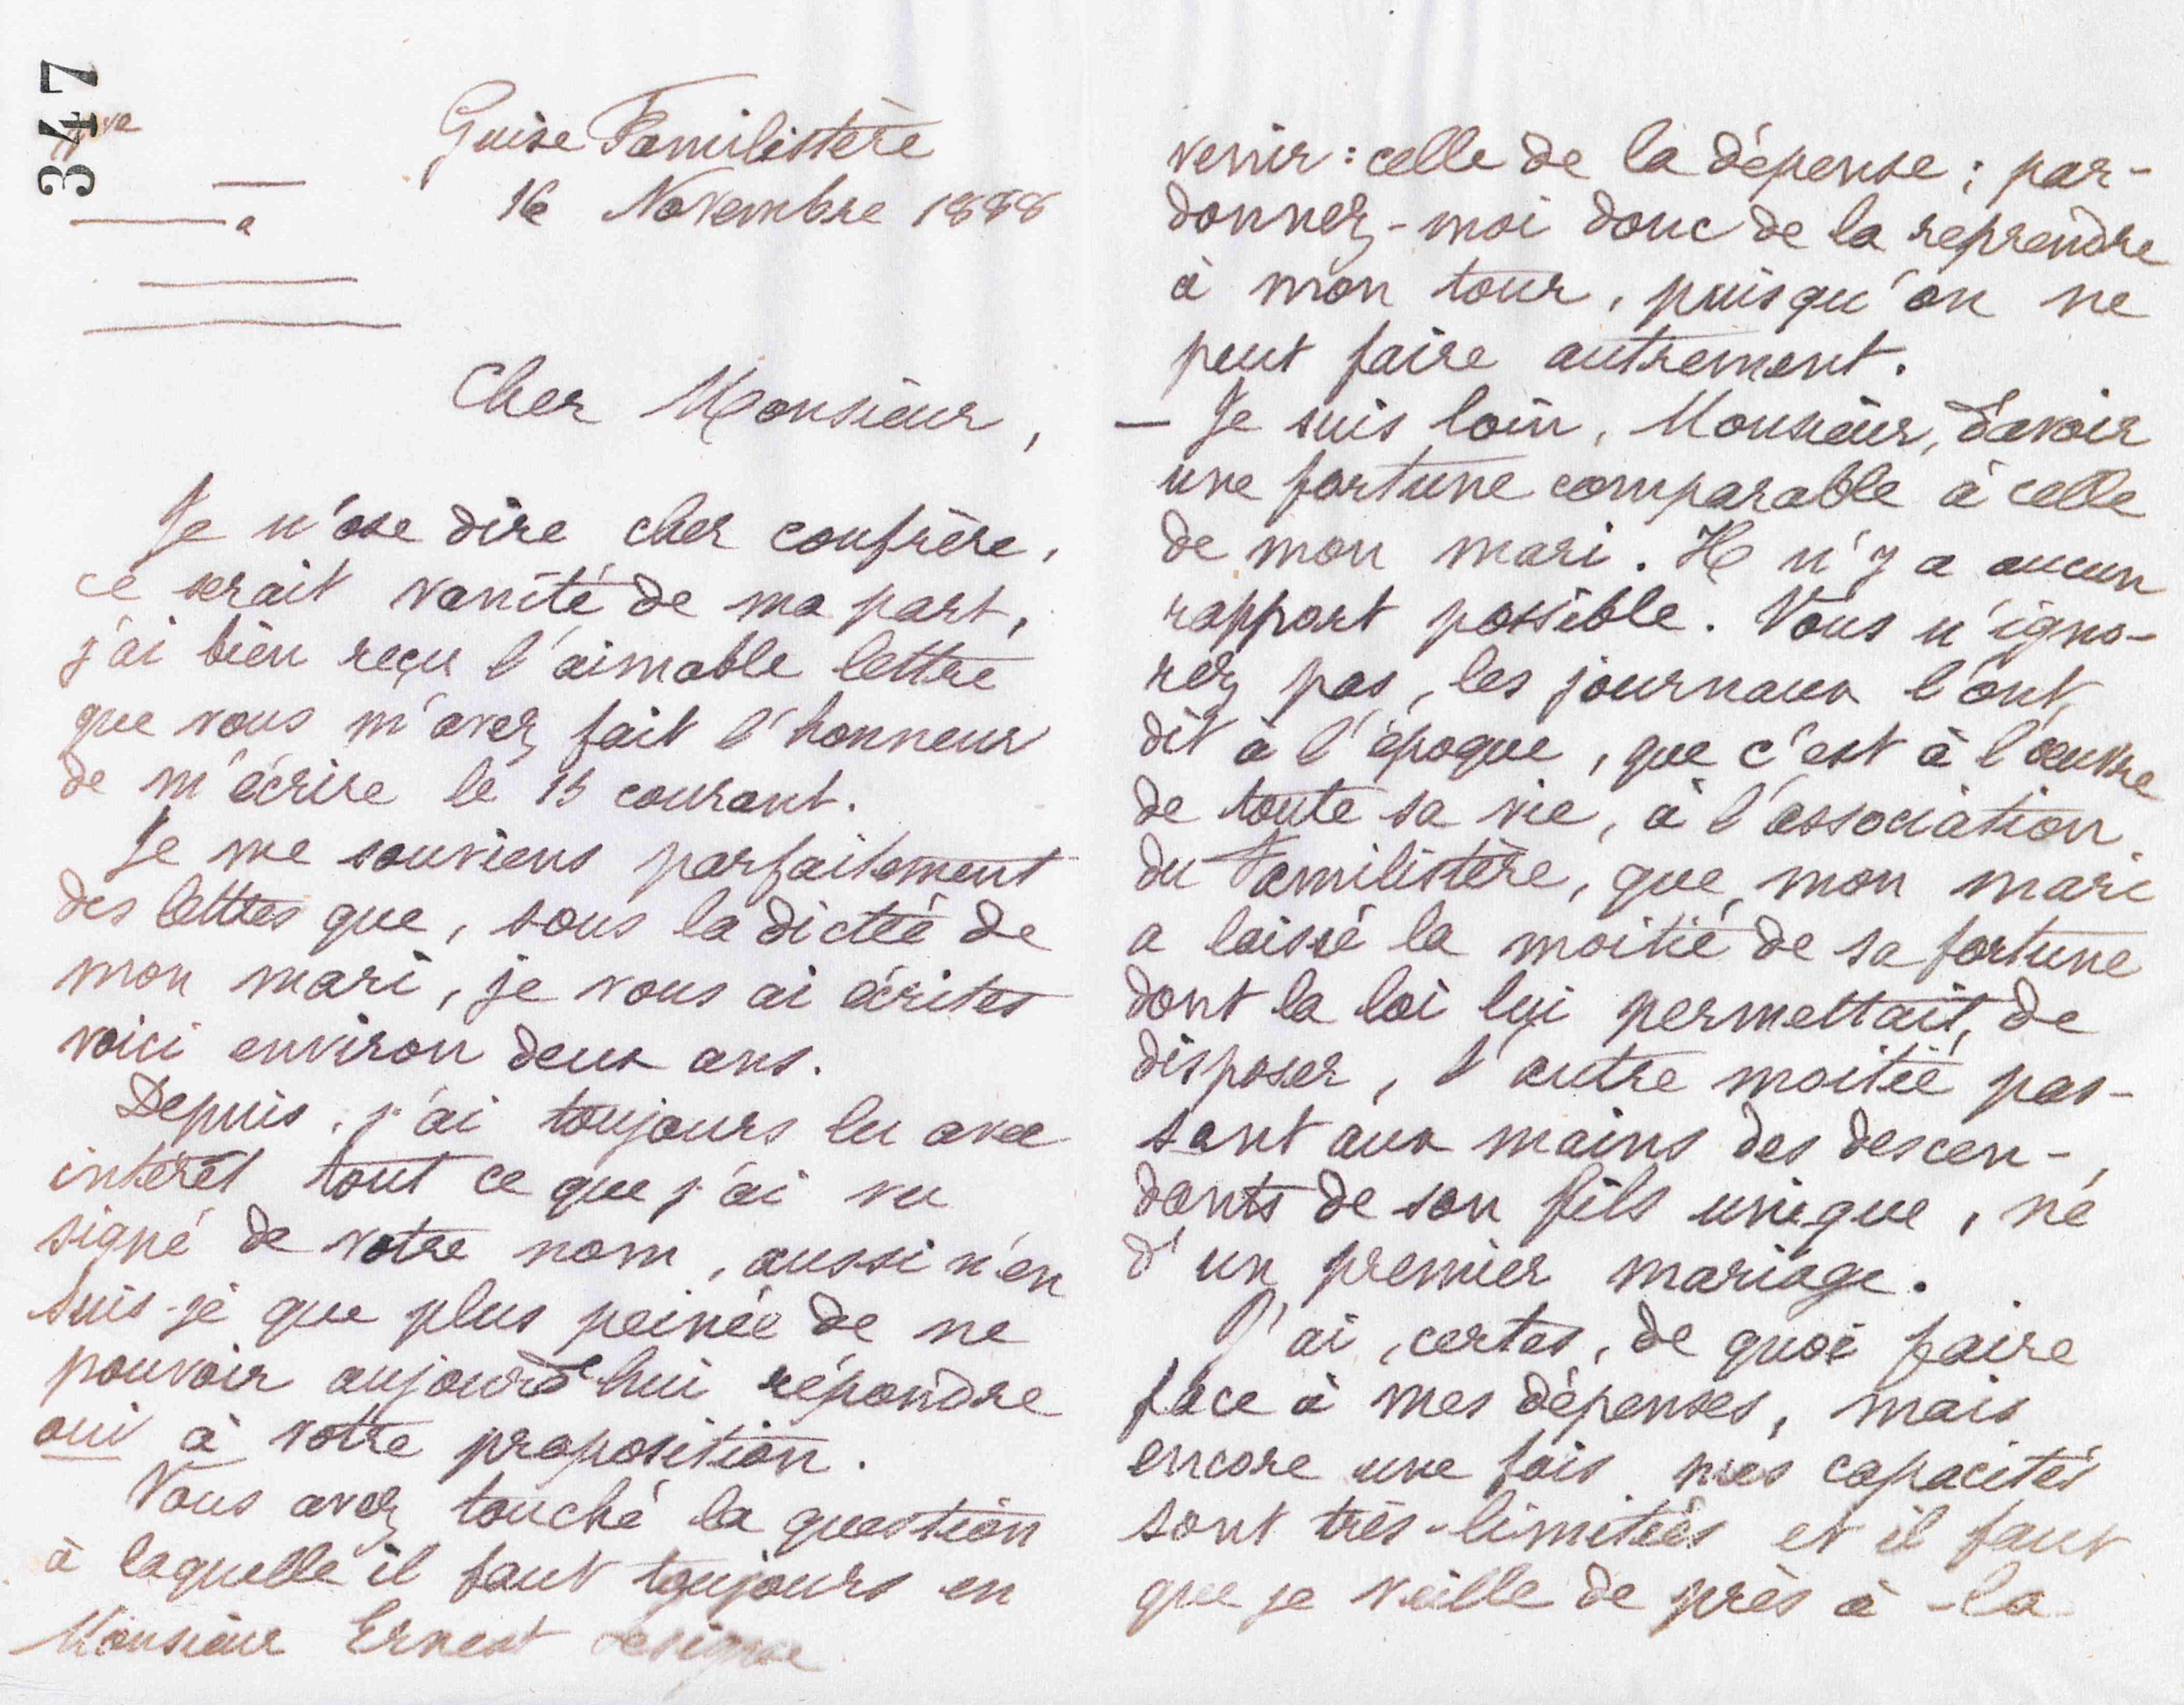 347
Guise Familistère
16 Novembre 1888
Cher Monsieur,
Je n'ose dire cher confrère,
ce serait vanité de ma part,
j'ai bien reçu l'aimable lettre
que vous m'avez fait l'honneur
de m'écrire le 15 courant.
Je me souviens parfaitement
des lettres que, sous la dictée de
mon mari, je vous ai écrites
voici environ deux ans.
Depuis, j'ai toujours lu avec
intérêt tout ce que j'ai vu
signé de votre nom, aussi n'en
suis-je que plus peinée de ne
pouvoir aujourd'hui répondre
oui à votre proposition.
Vous avez touché la question
à laquelle il faut toujours en
Monsieur Ernest
venir : celle de la dépense ; par-
donnez-moi donc de la reprendre
à mon tour, puisqu'on ne
peut faire autrement.
— Je suis loin, Monsieur, d'avoir
une fortune comparable à celle
de mon mari. Il n'y a aucun
rapport possible. Vous n'igno-
rez pas, les journaux l'ont
dit à l'époque, que c'est à l'œuvre
de toute sa vie, à l'association
du Familistère, que mon mari
a laissé la moitié de sa fortune
dont la loi lui permettait de
disposer, l'autre moitié pas-
sant aux mains des descen-
dants de son fils unique, né
d'un premier mariage.
J'ai, certes, de quoi faire
face à mes dépenses, mais
encore une fois mes capacités
sont très-limitées et il faut
que je veille de près à -la-